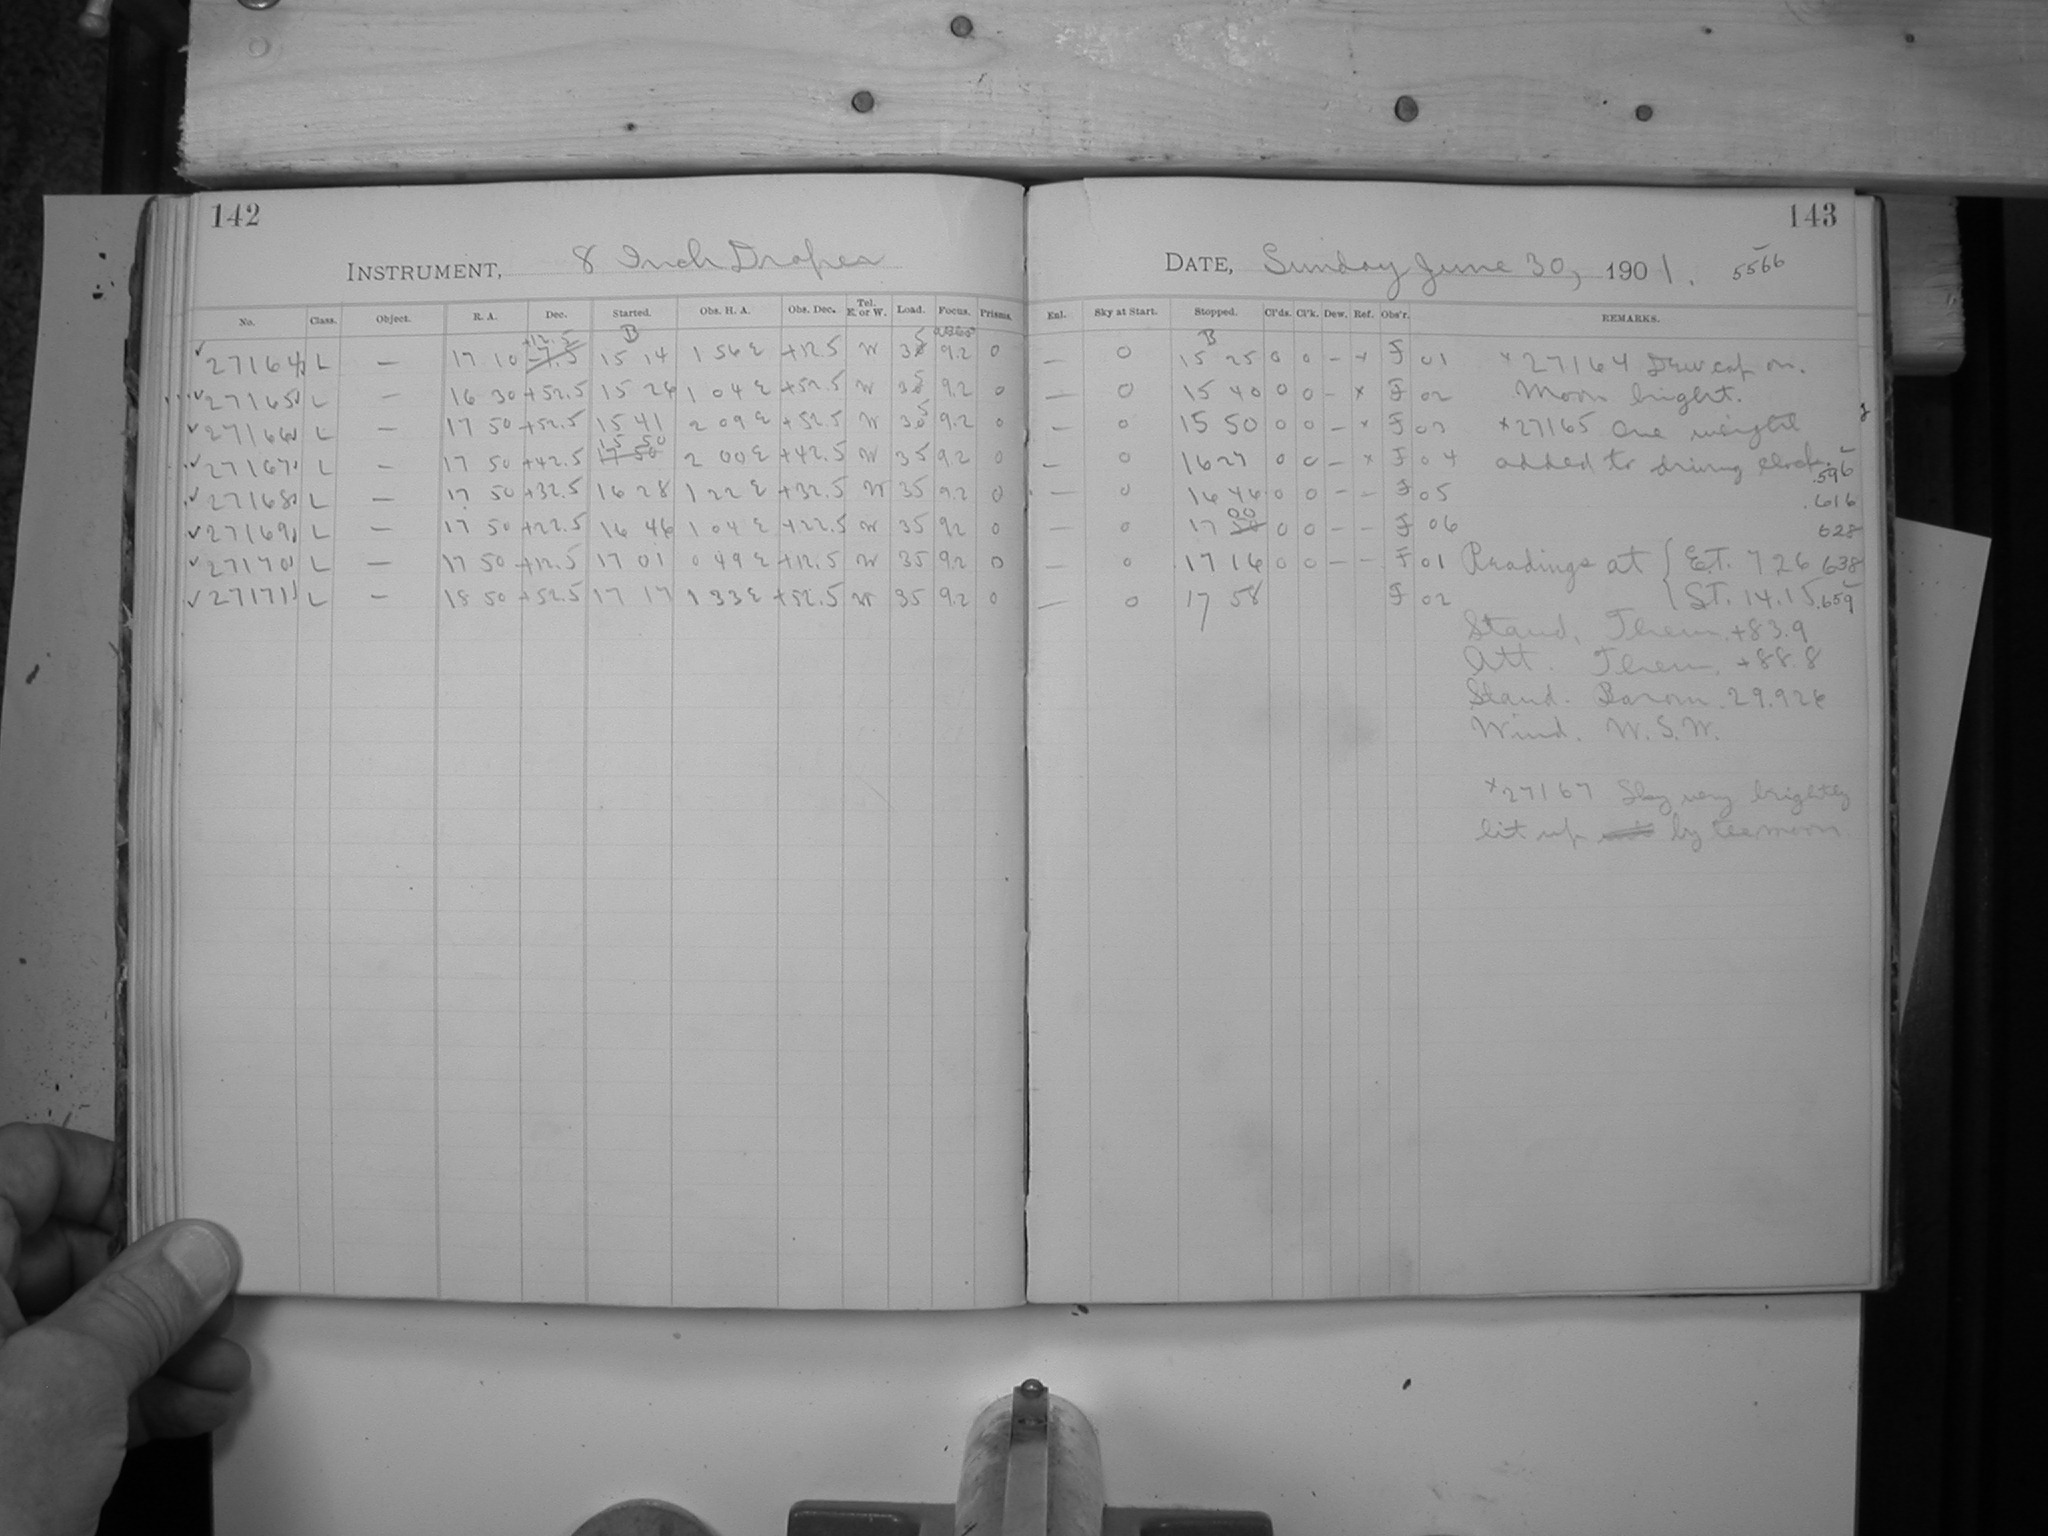 142
INSTRUMENT, 8 Inch Draper
No. Class. Object. R. A. Dec. Started. Obs. H. A. Obs. Dec. Tel. E. or W. Load. Focus. Prisms.
27164 L — 17 10 +12.5 15 14 1 56 E +12.5 W 35 9.2 0
27165 L — 16 30 +52.5 15 26 1 04 E +52.5 W 35 9.2 0
27166 L — 17 50 +52.5 15 41 2 09 E +52.5 W 35 9.2 0
27167 L — 17 50 +42.5 15 50 2 00 E +42.5 W 35 9.2 0
27168 L — 17 50 +32.5 16 28 1 22 E +32.5 W 35 9.2 0
27169 L — 17 50 +22.5 16 46 1 04 E +22.5 W 35 9.2 0
27170 L — 17 50 +12.5 17 01 0 49 E +12.5 W 35 9.2 0
27171 L — 18 50 +52.5 17 17 1 33 E +52.5 W 35 9.2 0
143
DATE, Sunday June 30, 1901. 5566
Enl. Sky at Start. Stopped. Cl'ds. Cl'k. Dew. Ref. Obs'r. REMARKS.
— 0 15 25 0 0 – x F 01 x 27164 Dew cap on.
— 0 15 40 0 0 – x F 02 Moon bright.
— 0 15 50 0 0 – x F 03 x 27165 One weight
— 0 16 27 0 0 – x F 04 added to driving clock. .596
— 0 16 46 0 0 – – F 05 .616
— 0 17 00 0 0 – – F 06 628
— 0 17 16 0 0 – – F 01 Readings at { E.T. 7 26 638
— 0 17 58 F 02 { S.T. 14.15 .659
Stand. Therm. +83.9
Att. Therm. +88.8
Stand. Barom. 29.926
Wind. W.S.W.
x 27167 Sky very brightly
lit up by the moon.